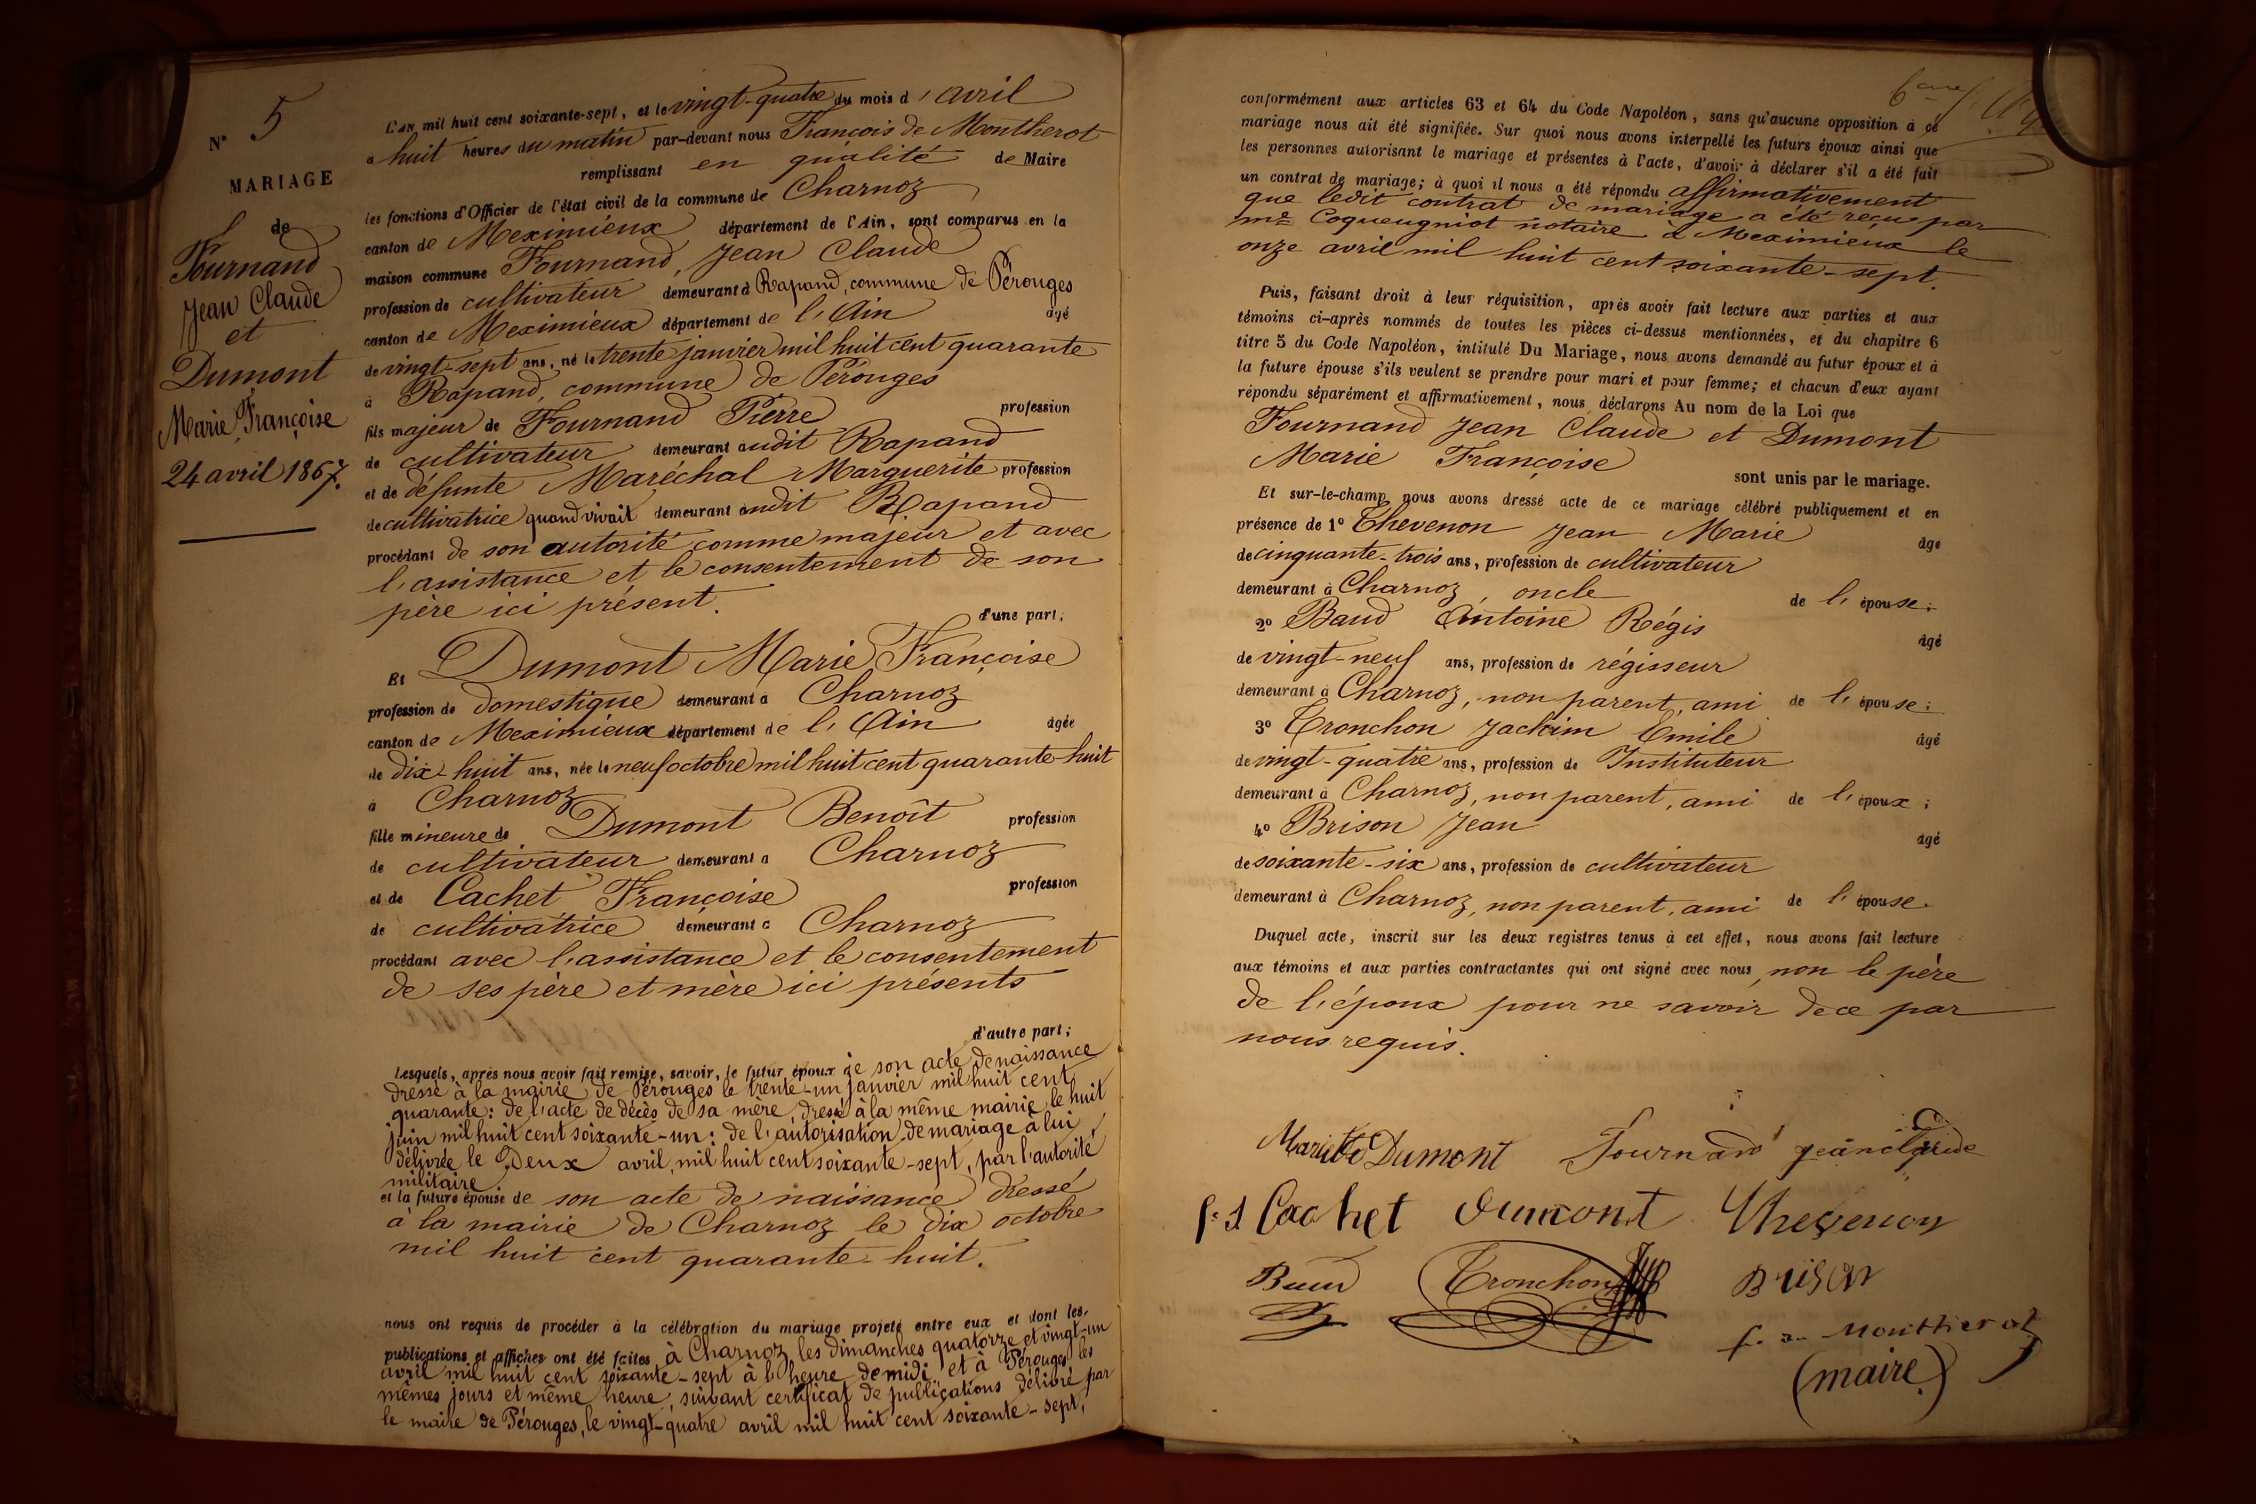 N° 5
MARIAGE
de
Fournand
Jean Claude
et
Dumont
Marie Françoise
24 avril 1867.
L'AN mil huit cent soixante-sept, et le vingt-quatre du mois d'avril
à huit heures du matin par-devant nous François de Montherot
remplissant en qualité de Maire
les fonctions d'Officier de l'état civil de la commune de Charnoz
canton de Meximieux département de l'Ain, sont comparus en la
maison commune Fournand, Jean Claude
profession de cultivateur demeurant à Rapand, commune de Pérouges
canton de Meximieux département de l'Ain âgé
de vingt-sept ans, né le trente janvier mil huit cent quarante
à Rapand, commune de Pérouges
fils majeur de Fournand Pierre profession
de cultivateur demeurant audit Rapand
et de défunte Maréchal Marguerite profession
de cultivatrice quand vivait demeurant audit Rapand
procédant de son autorité comme majeur et avec
l'assistance et le consentement de son
père ici présent.
d'une part;
Et Dumont Marie Françoise
profession de domestique demeurant à Charnoz
canton de Meximieux département de l'Ain âgée
de dix-huit ans, née le neuf octobre mil huit cent quarante-huit
à Charnoz
fille mineure de Dumont Benoît profession
de cultivateur demeurant à Charnoz
et de Cachet Françoise profession
de cultivatrice demeurant à Charnoz
procédant avec l'assistance et le consentement
de ses père et mère ici présents
d'autre part;
Lesquels, après nous avoir fait remise, savoir, le futur époux de son acte de naissance
dressé à la mairie de Pérouges le trente-un janvier mil huit cent
quarante: de l'acte de décès de sa mère dressé à la même mairie le huit
juin mil huit cent soixante-un: de l'autorisation de mariage à lui
délivrée le Deux avril mil huit cent soixante-sept, par l'autorité
militaire
et la future épouse de son acte de naissance dressé
à la mairie de Charnoz le dix octobre
mil huit cent quarante-huit.
nous ont requis de procéder à la célébration du mariage projeté entre eux et dont les
publications et affiches ont été faites à Charnoz les dimanches quatorze et vingt-un
avril mil huit cent soixante-sept à l'heure de midi et à Pérouges les
mêmes jours et même heure, suivant certificat de publications délivré par
le maire de Pérouges, le vingt-quatre avril mil huit cent soixante-sept,
conformément aux articles 63 et 64 du Code Napoléon, sans qu'aucune opposition à ce
mariage nous ait été signifiée. Sur quoi nous avons interpellé les futurs époux ainsi que
les personnes autorisant le mariage et présentes à l'acte, d'avoir à déclarer s'il a été fait
un contrat de mariage; à quoi il nous a été répondu affirmativement
que ledit contrat de mariage a été reçu par
me Coqueugniot notaire à Meximieux le
onze avril mil huit cent soixante-sept.
Puis, faisant droit à leur réquisition, après avoir fait lecture aux parties et aux
témoins ci-après nommés de toutes les pièces ci-dessus mentionnées, et du chapitre 6
titre 5 du Code Napoléon, intitulé Du Mariage, nous avons demandé au futur époux et à
la future épouse s'ils veulent se prendre pour mari et pour femme; et chacun d'eux ayant
répondu séparément et affirmativement, nous déclarons Au nom de la Loi que
Fournand Jean Claude et Dumont
Marie Françoise
sont unis par le mariage.
Et sur-le-champ nous avons dressé acte de ce mariage célébré publiquement et en
présence de 1° Thevenon Jean Marie âgé
de cinquante-trois ans, profession de cultivateur
demeurant à Charnoz, oncle de l'épouse;
2° Baud Antoine Régis âgé
de vingt-neuf ans, profession de régisseur
demeurant à Charnoz, non parent, ami de l'épouse;
3° Tronchon Jackim Emile âgé
de vingt-quatre ans, profession de Instituteur
demeurant à Charnoz, non parent, ami de l'époux;
4° Brison Jean âgé
de soixante-six ans, profession de cultivateur
demeurant à Charnoz, non parent, ami de l'épouse.
Duquel acte, inscrit sur les deux registres tenus à cet effet, nous avons fait lecture
aux témoins et aux parties contractantes qui ont signé avec nous, non le père
de l'époux pour ne savoir de ce par
nous requis.
Dumont Fournand jean claude
Cachet Dumont Thevenon
Baud Tronchon Brison
f. de Montherot
(maire)